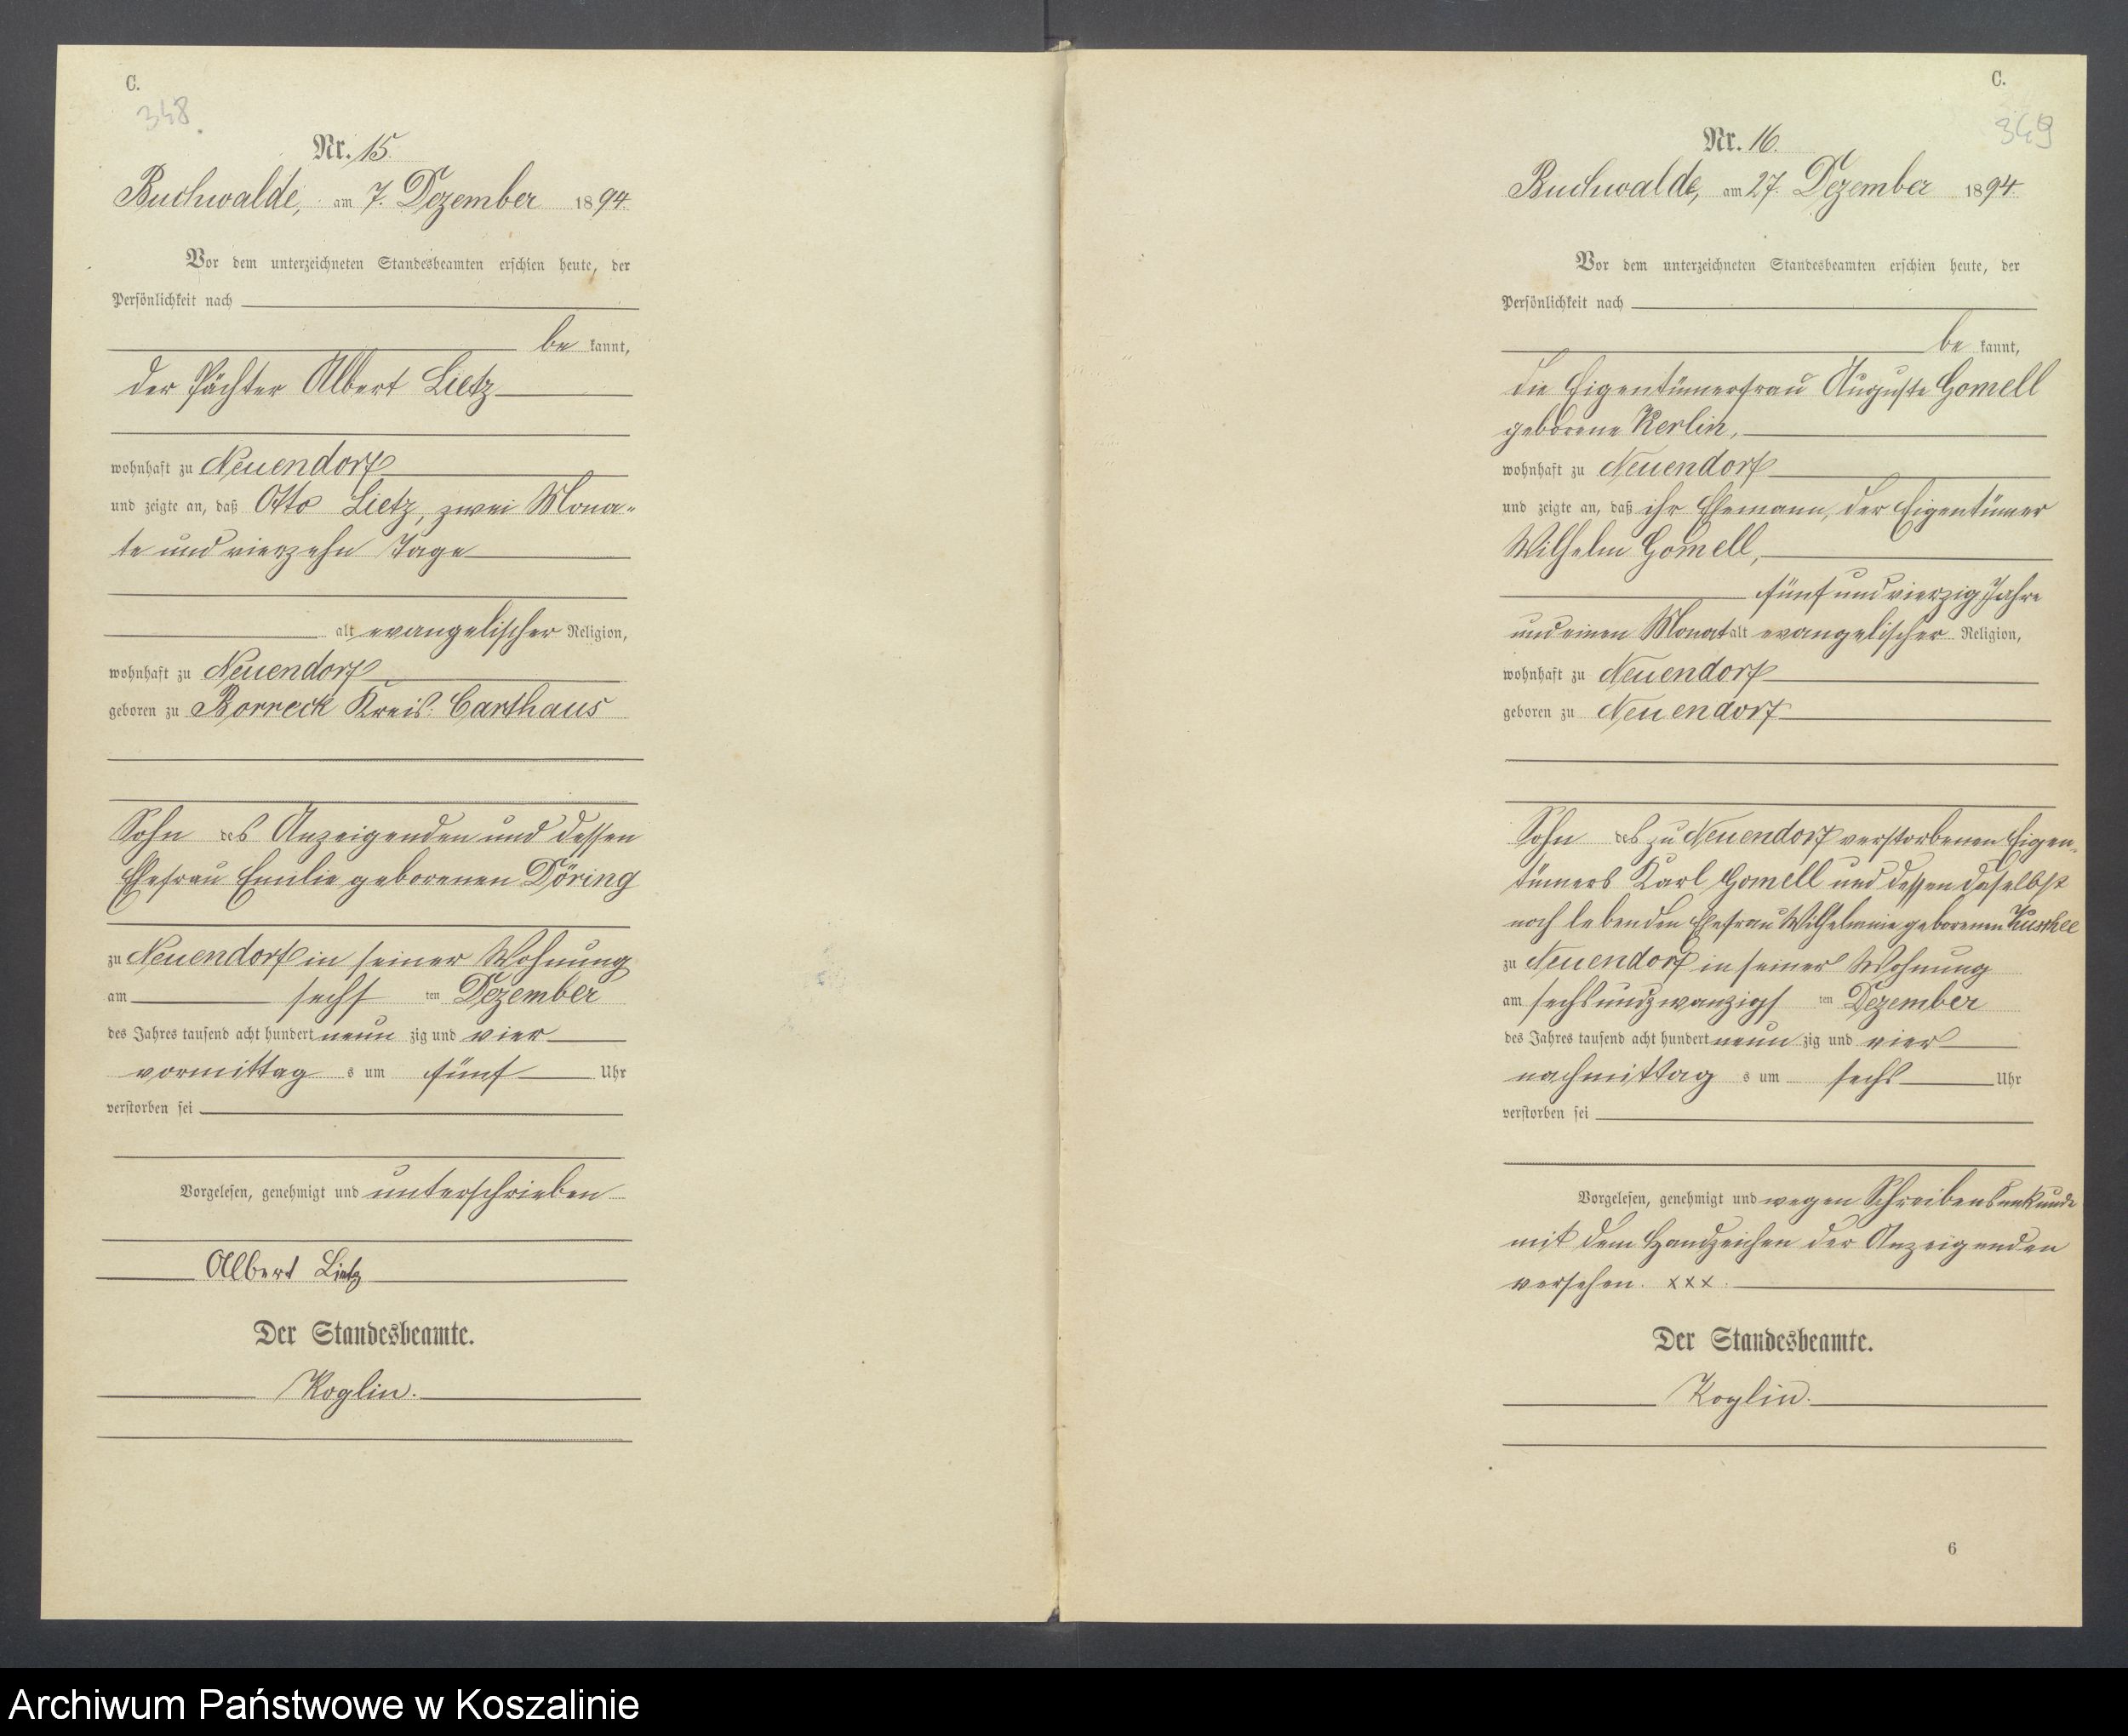 C.
348.
Nr. 15.
Buchwalde, am 7. Dezember 1894.
Vor dem unterzeichneten Standesbeamten erschien heute, der
Persönlichkeit nach
be kannt,
der Pächter Albert Lietz
wohnhaft zu Neuendorf
und zeigte an, daß Otto Lietz, zwei Mona-
te und vierzehn Tage
alt evangelischer Religion,
wohnhaft zu Neuendorf
geboren zu Borreck Kreis Carthaus
Sohn des Anzeigenden und dessen
Ehefrau Emilie geborenen Döring
zu Neuendorf in seiner Wohnung
am sechs ten Dezember
des Jahres tausend acht hundert neun zig und vier
vormittag s um fünf Uhr
verstorben sei
Vorgelesen, genehmigt und unterschrieben
Albert Lietz
Der Standesbeamte.
Koglin.
C.
349
Nr. 16.
Buchwalde, am 27. Dezember 1894.
Vor dem unterzeichneten Standesbeamten erschien heute, der
Persönlichkeit nach
be kannt,
die Eigentümerfrau Auguste Gomell
geborene Kerlin,
wohnhaft zu Neuendorf
und zeigte an, daß ihr Ehemann, der Eigentümer
Wilhelm Gomell,
fünf und vierzig Jahre
und einen Monat alt evangelischer Religion,
wohnhaft zu Neuendorf
geboren zu Neuendorf
Sohn des zu Neuendorf verstorbenen Eigen-
tümers Karl Gomell und dessen daselbst
noch lebenden Ehefrau Wilhelmine geborenen
zu Neuendorf in seiner Wohnung
am sechsundzwanzigs ten Dezember
des Jahres tausend acht hundert neun zig und vier
nachmittag s um sechs Uhr
verstorben sei
Vorgelesen, genehmigt und wegen Schreibensunkunde
mit dem Handzeichen der Anzeigenden
versehen. xxx.
Der Standesbeamte.
Koglin.
6
Archiwum Państwowe w Koszalinie